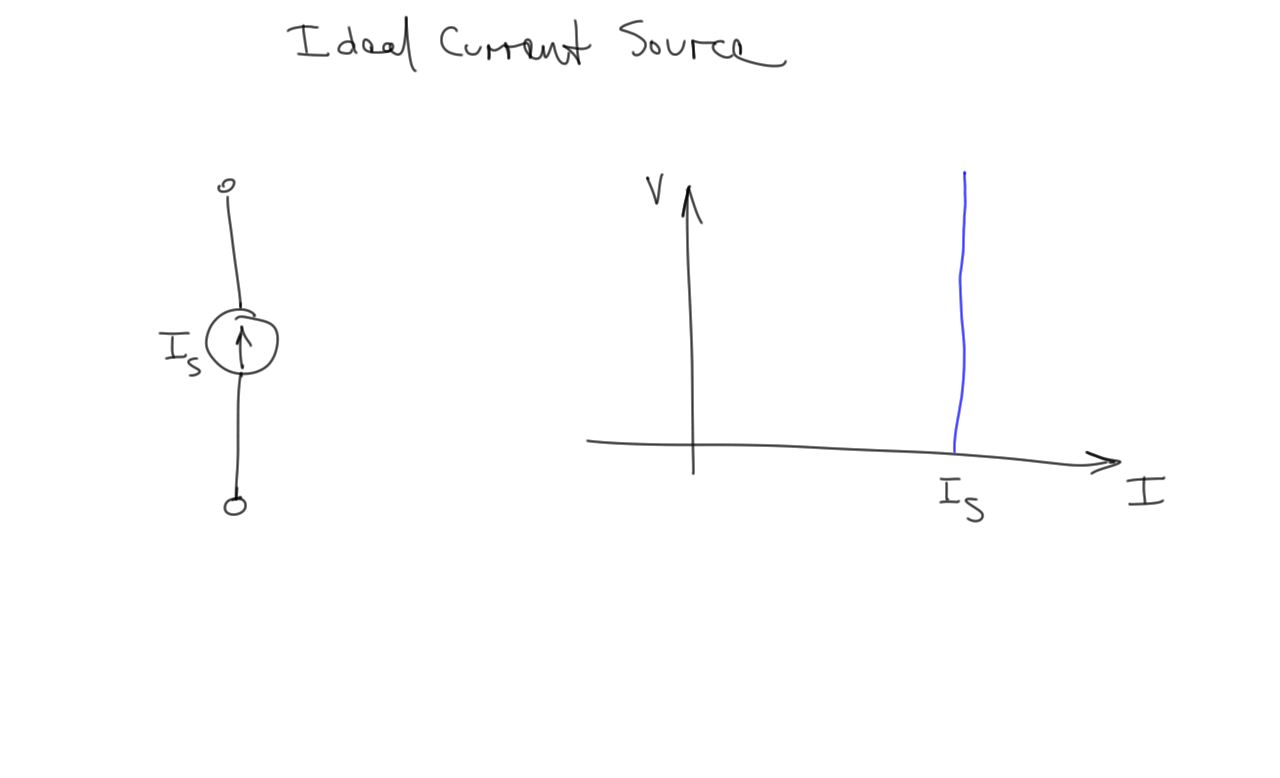 Ideal Current Source
V
I_S
I_S
I